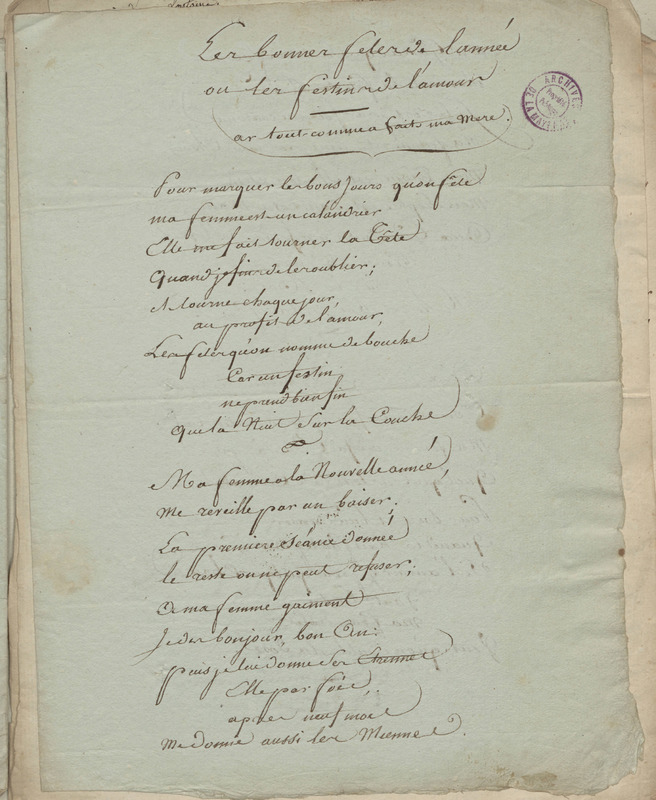 Les bonnes fetes de l'année
ou les festins de l'amour
air tout comme a fait ma Mere.
ARCHIVES DE LA MAYENNE
Pour marquer les bons Jours qu'on fête
ma femme est un calandrier
Elle me fait tourner la Tête
Quand je de les oublier;
et tourne chaque jour,
au profit de l'amour,
Les fetes qu'on nomme de bouche
Car un festin
ne prend bien fin
Que la Nuit Sur la Couche
Ma femme a la Nouvelle année,
me reveille par un baiser;
La premiere Séance donnée
le reste on ne peut refuser;
a ma femme gaiment
Je dis bonjour, bon an:
puis je lui donne ses Etrennes
Elle par foie,
apres neuf mois
me donne aussi les Miennes.